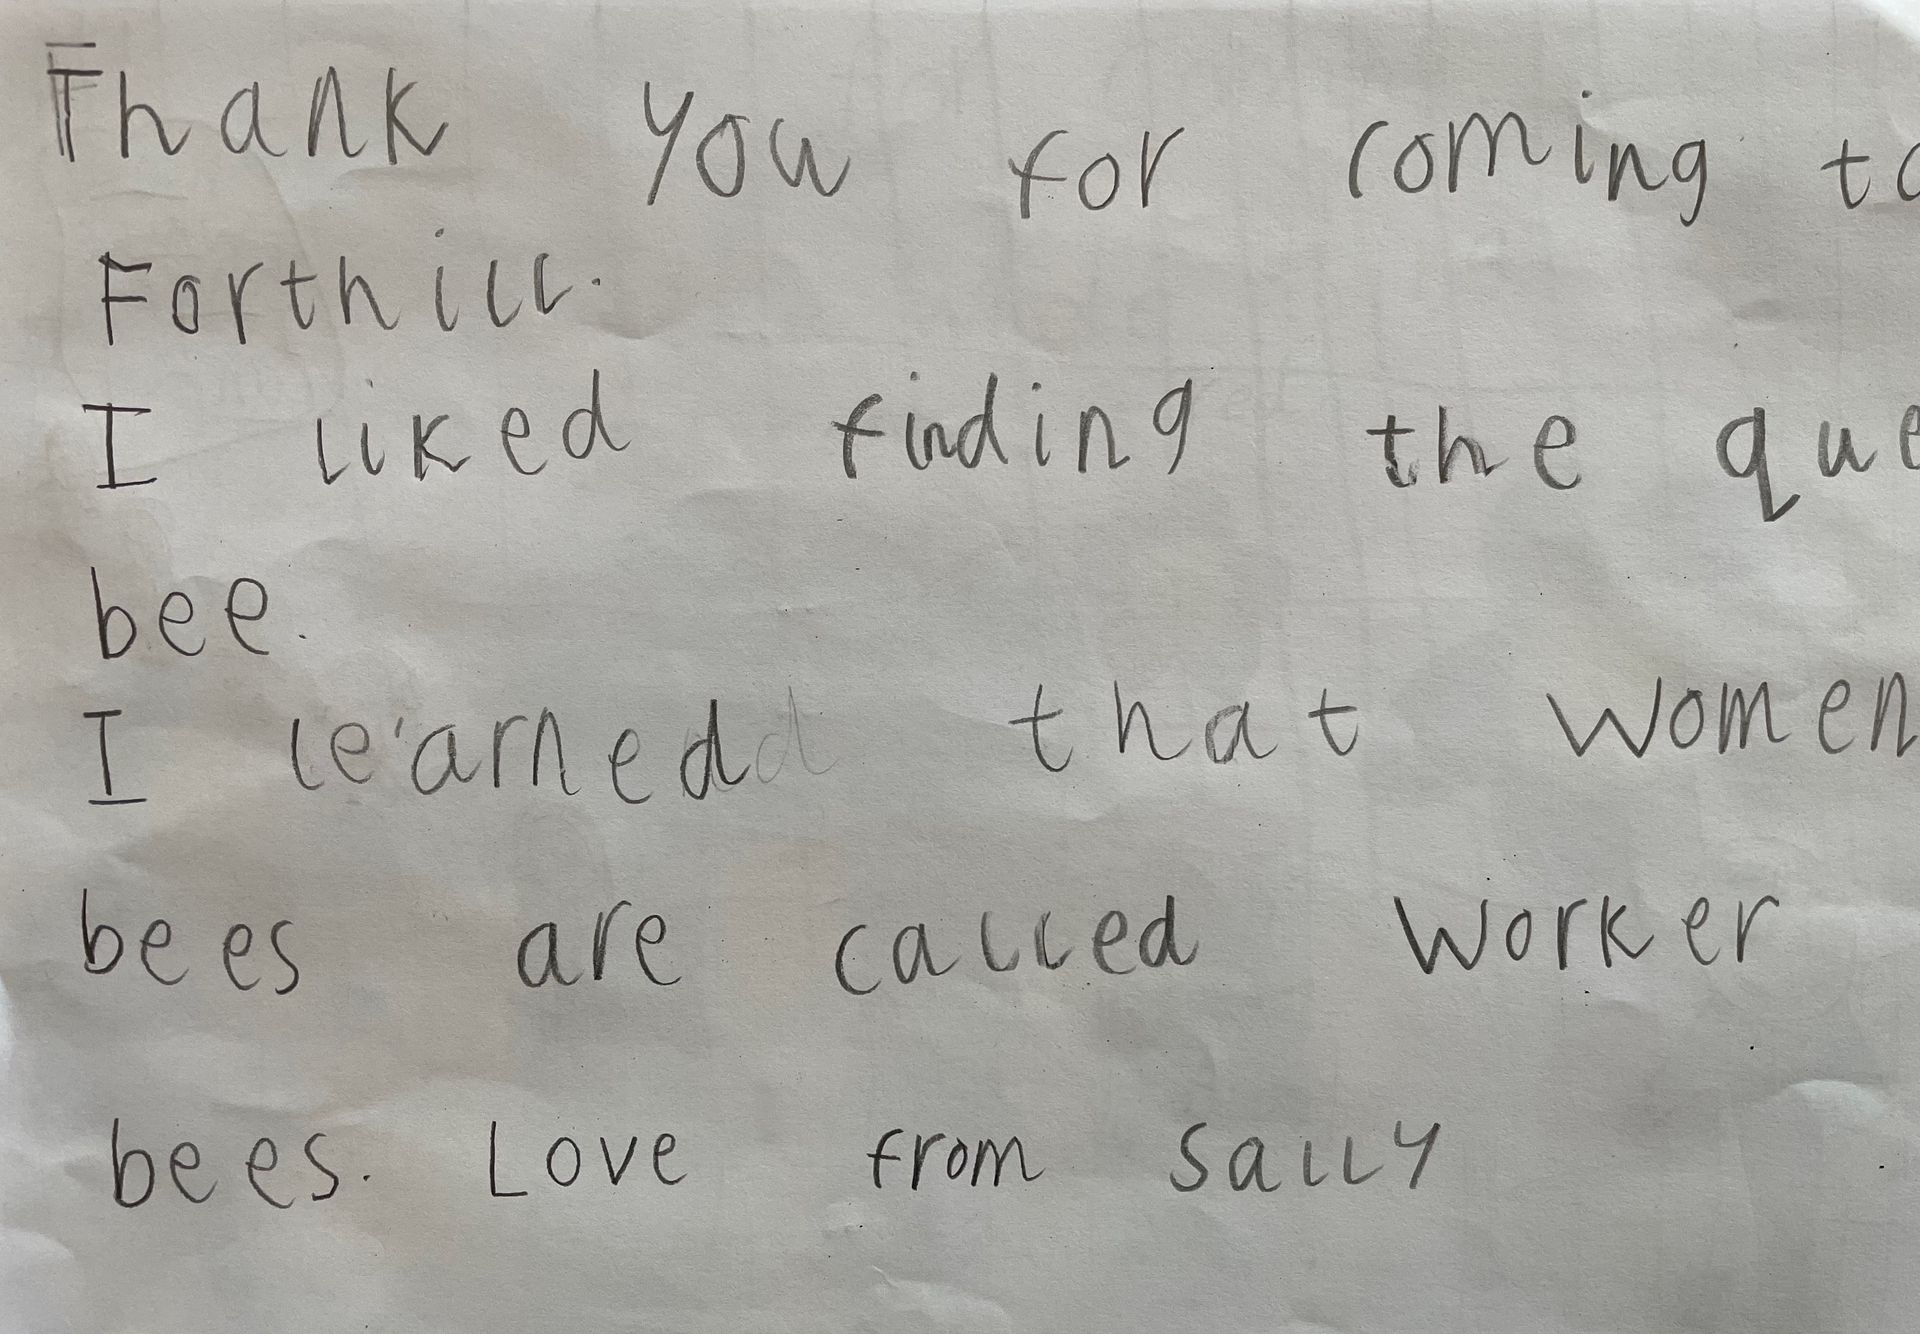 Thank you for coming to
Forthill.
I liked finding the que
bee.
I learned that women
bees are called worker
bees. Love from Sally